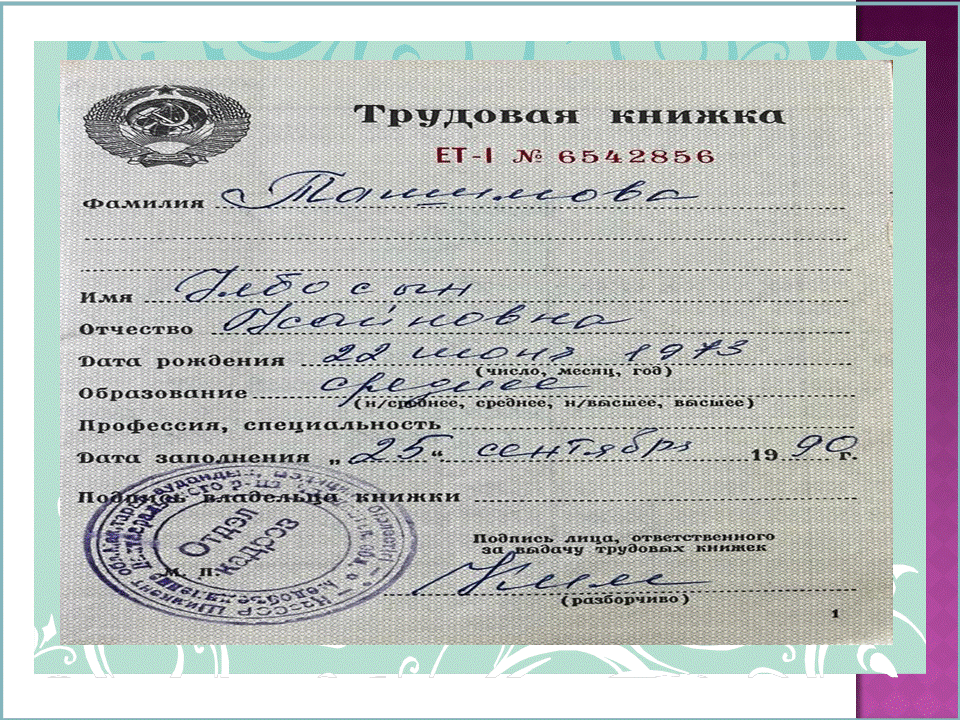 Трудовая книжка
ЕТ-I № 6542856
Фамилия Ташимова
Имя Улбосын
Отчество Усайновна
Дата рождения 22 июня 1973
(число, месяц, год)
Образование среднее
(н/среднее, среднее, н/высшее, высшее)
Профессия, специальность
Дата заполнения „25“ сентября 1990 г.
Подпись владельца книжки
Отдел кадров
Подпись лица, ответственного
за выдачу трудовых книжек
М. П.
(разборчиво)
1